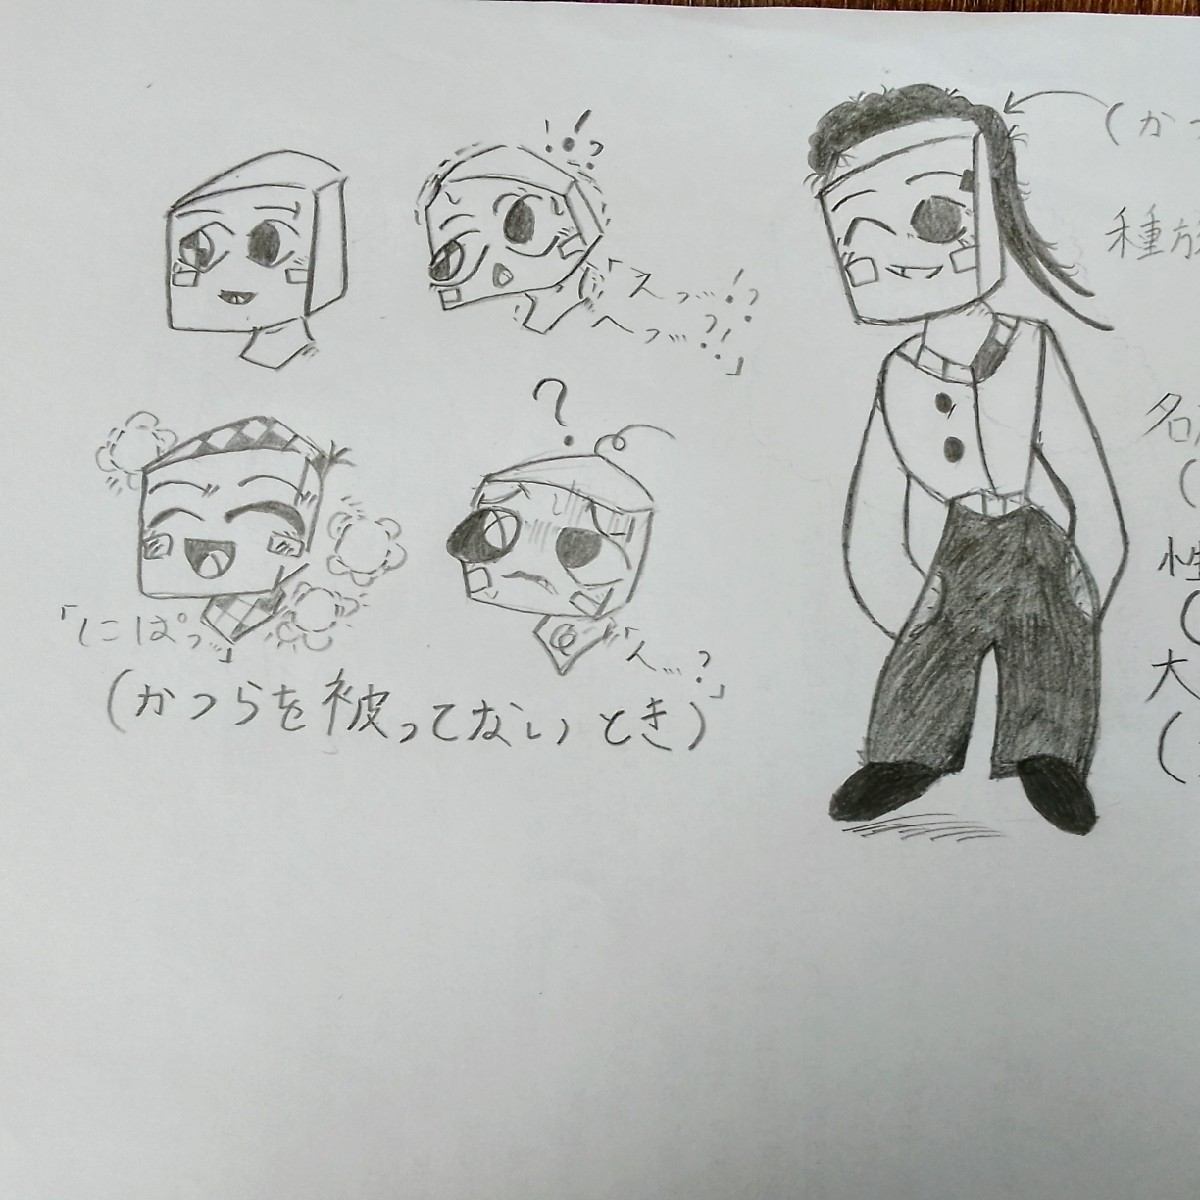 ！？
「えっ…！？
へっ…？！」
？
「にぱっ」
「ん…？」
(かつらを被ってないとき)
(かつ
種族
名
(
性
(
大
(